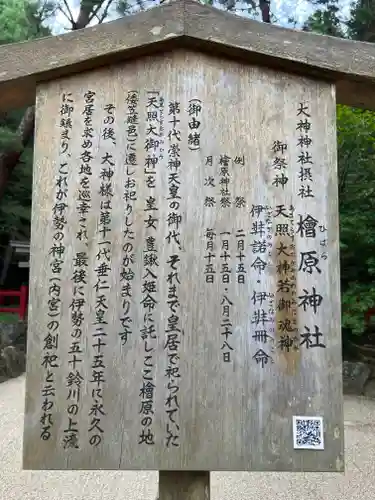 大神神社摂社 檜原神社
ひばら
御祭神 天照大神若御魂神
伊弉諾命・伊弉冊命
例祭 二月十五日
檜原神社祭 一月十五日・八月二十八日
月次祭 毎月十五日
(御由緒)
第十代崇神天皇の御代、それまで皇居で祀られていた
「天照大御神」を皇女豊鍬入姫命に託しここ檜原の地
(倭笠縫邑)に遷しお祀りしたのが始まりです
その後、大神様は第十一代垂仁天皇二十五年に永久の
宮居を求め各地を巡幸され、最後に伊勢の五十鈴川の上流
に御鎮まり、これが伊勢の神宮(内宮)の創祀と云われる